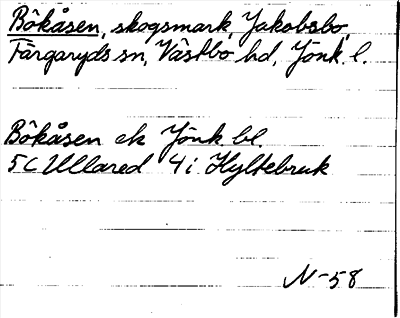 Bökåsen, skogsmark, Jakobsbo,
Färgaryds sn, Västbo hd, Jönk. l.
Bökåsen ek Jönk. bl.
5C Ullared 4i Hyltebruk
N-58